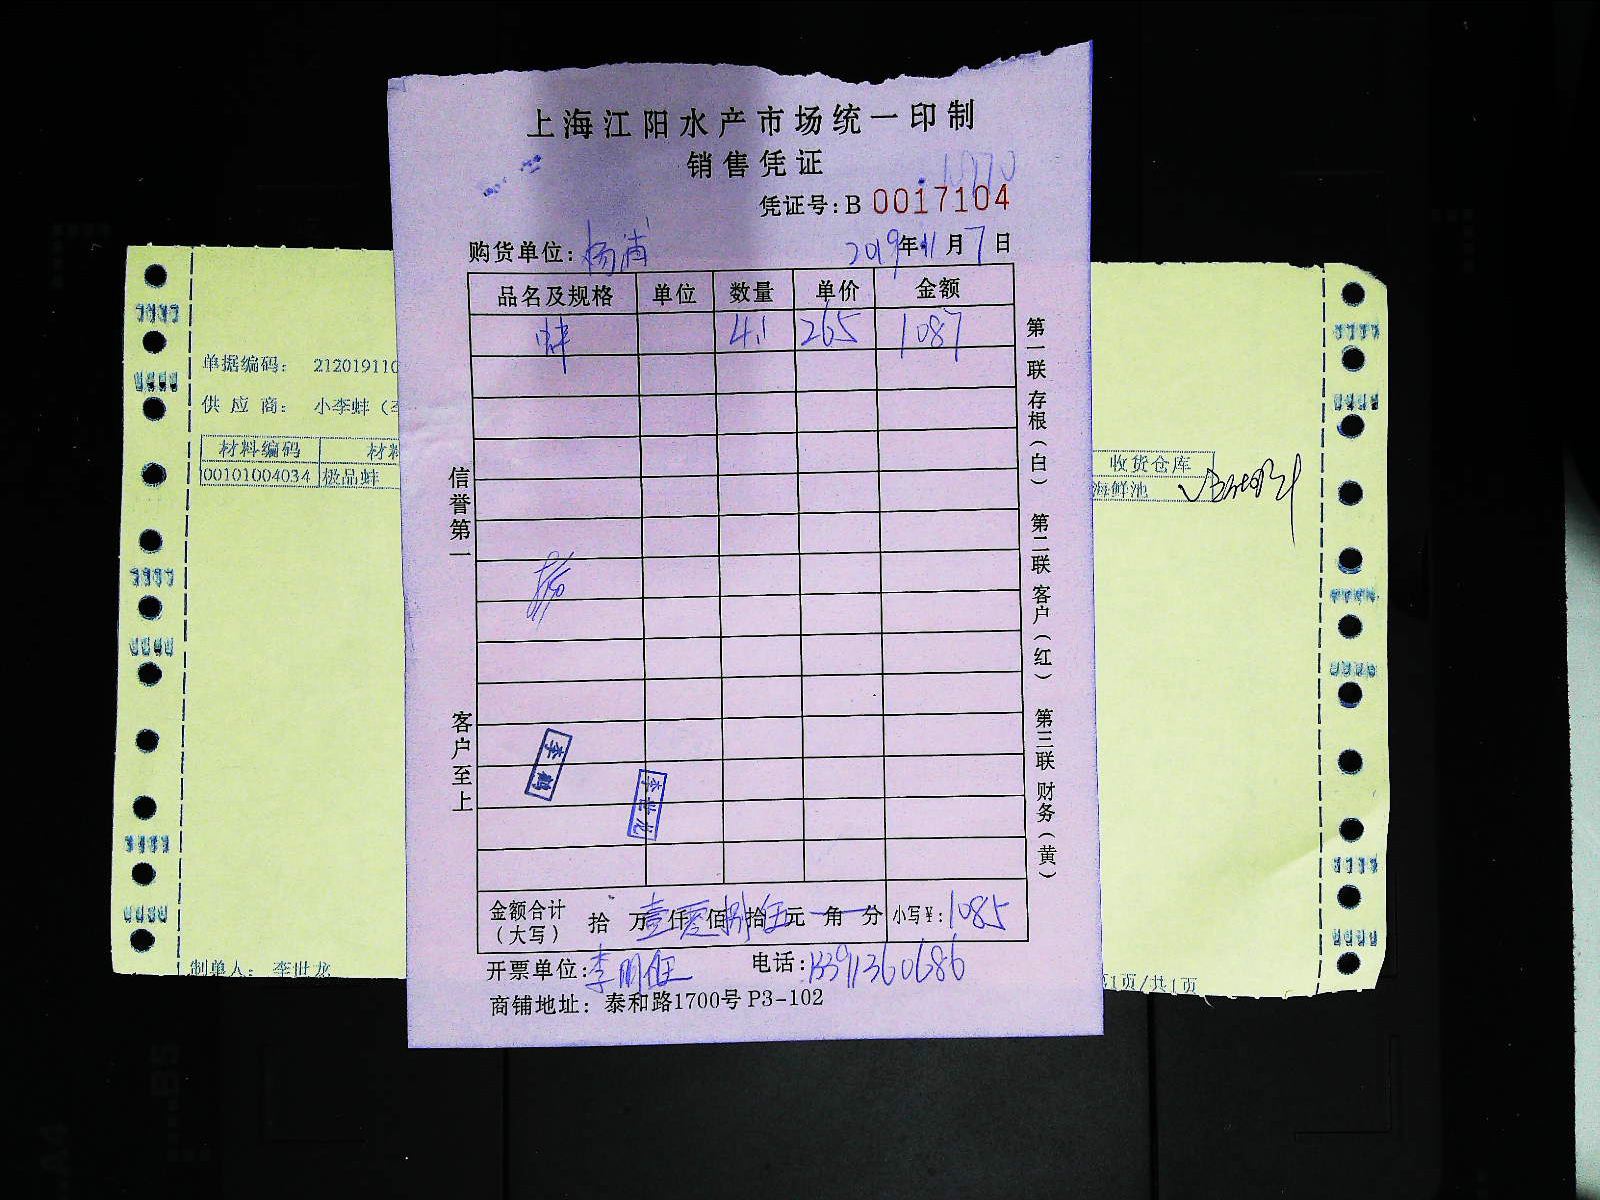 上海江阳水产市场统一印制
销售凭证
凭证号:B 0017104
购货单位: 杨浦 2019年11月7日
品名及规格 单位 数量 单价 金额
蚌 4.1 265 1087
信誉第一
客户至上
第一联 存根(白) 第二联 客户(红) 第三联 财务(黄)
李鹤
李世龙
金额合计(大写) 拾 万壹仟零佰捌拾伍元 角 分 小写¥: 1085
开票单位: 李明旺 电话: 13391360686
商铺地址: 泰和路1700号 P3-102
单据编码: 212019110
供应商: 小李蚌(李
材料编码 材料
00101004034 极品蚌
制单人: 李世龙
收货仓库
海鲜池
第1页/共1页